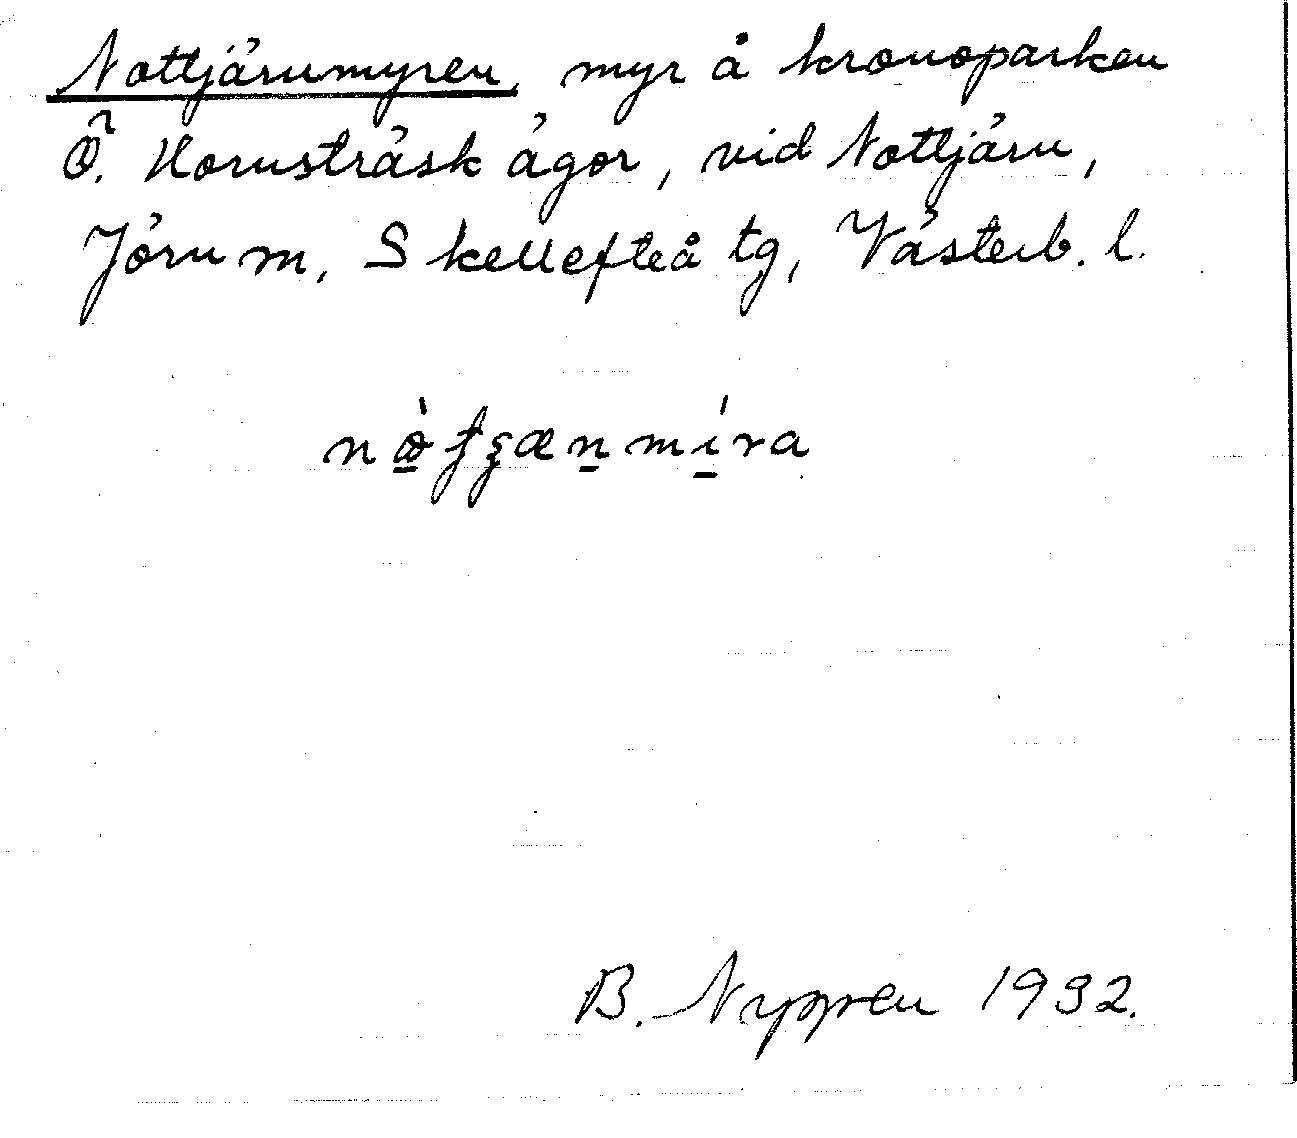 Nottjärnmyren, myr å kronoparken
Ö. Hornsträsk ägor, vid Nottjärn,
Jörn sn, Skellefteå tg, Västerb. l.
B. Nygren 1932.